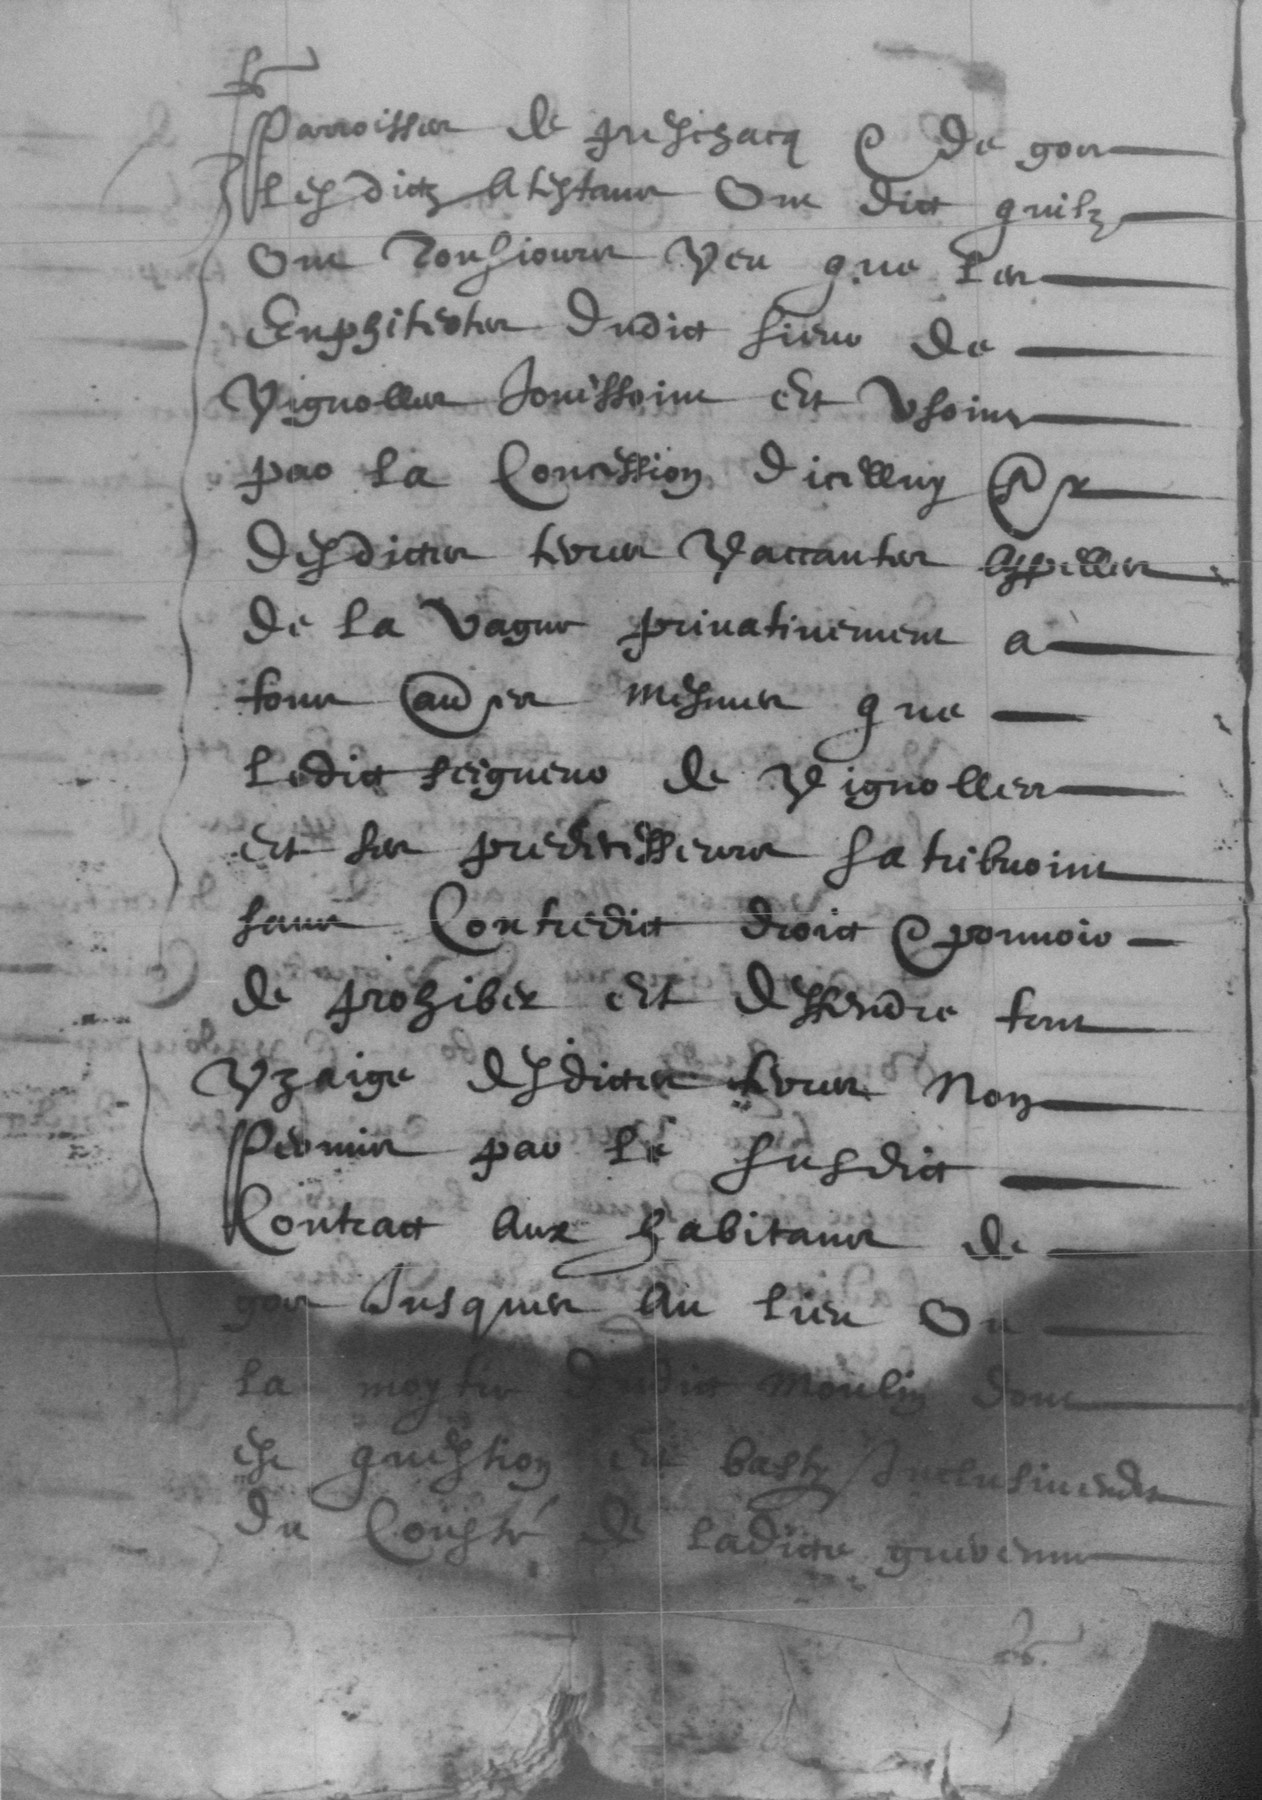 Parroisses de preschacq & de goux
Lesdictz Atestans Ont dict quilz
Ont Tousiours Veu que Les
Emphiteotes dudict sieur de
Vignolles Jouissoint et Usoint
par La Concession dicelluy
desdictes terres Vaccantes Appelles
de La Vague privativement a
tous au res mesmes que
Ledict seigneur de Vignolles
et ses predecesseurs satribuoint
sans Contredict droict & pouvoir
de prohiber et deffendre tout
Uzaige desdictes terres Non
Permis par Le susdict
Contract Aux habitans de
goux Jusques Au Lieu Ou
La moytie dudict Moulin dont
est question est basty Inclusivement
du Cousté de Ladicte